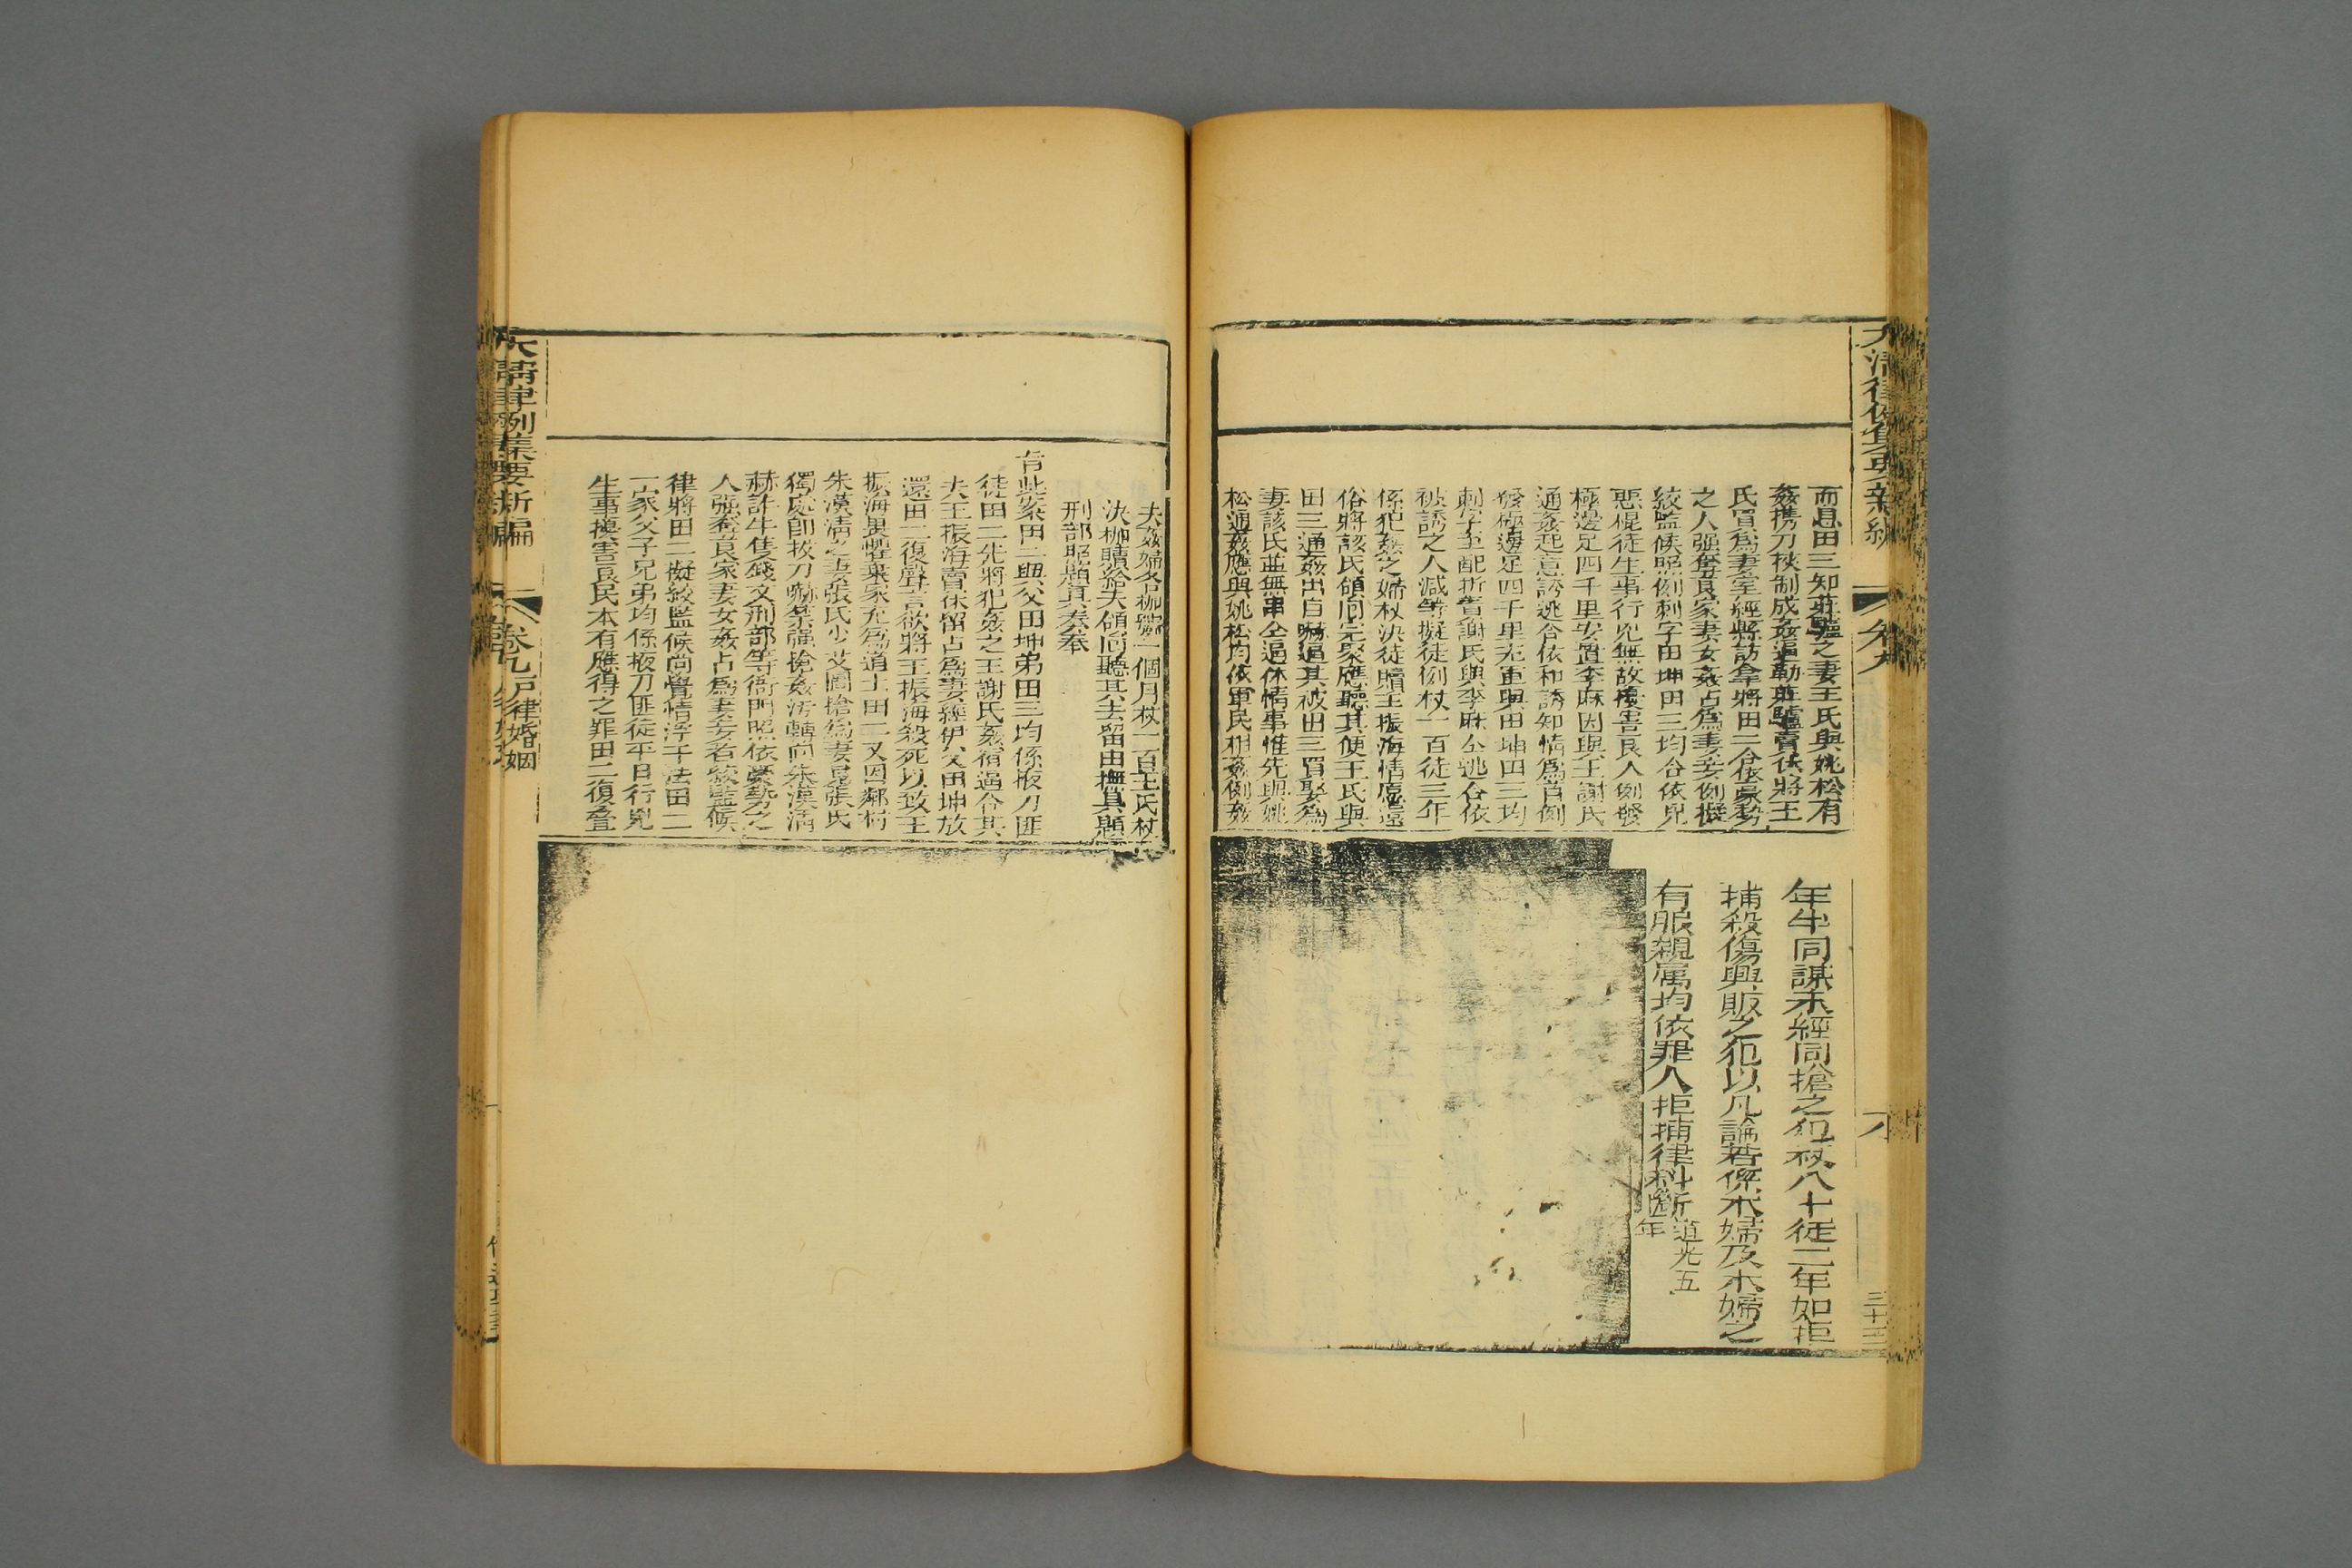 大清律例集要新編
卷九
三十三
而息田三知莊驢之妻王氏與姚松有
姦携刀挾制成姦逼勒莊驢賣休將王
氏買爲妻室經縣訪拿將田二合依豪勢
之人强奪良家妻女姦占爲妻妾例擬
絞監候照例刺字田坤田三均合依兇
惡棍徒生事行兇無故擾害良人例發
極邊足四千里安置李麻因與王謝氏
通姦起意誘逃合依和誘知情爲首例
發極邊足四千里充軍與田坤田三均
刺字至配折責謝氏與李麻仝逃合依
被誘之人減等擬徒例杖一百徒三年
係犯姦之婦杖決徒贖王振海情愿還
俗將該氏領囘完聚應聽其便王氏與
田三通姦出自嚇逼其被田三買娶爲
妻該氏並無串仝逼休情事惟先與姚
松通姦應與姚松均依軍民相姦例姦
年牛同謀未經同搶之犯杖八十徒二年如拒
捕殺傷興販之犯以凡論若係本婦及本婦之
有服親属均依罪人拒捕律科斷道光五年
夫姦婦各枷號一個月杖一百王氏杖
決枷贖給夫領囘聽其去留由撫具題
刑部照題具奏奉
旨此案田二與父田坤弟田三均係掖刀匪
徒田二先將犯姦之王謝氏姦宿逼令其
夫王振海賣休留占爲妻經伊父田坤放
還田二復聲言欲將王振海殺死以致王
振海畏懼棄家充爲道士田二又因鄰村
朱漢清之妻張氏少艾圖搶爲妻見張氏
獨處即拔刀嚇禁强搶姦汚轉向朱漢清
赫詐牛隻錢文刑部等衙門照依豪勢之
人强奪良家妻女姦占爲妻妾者絞監候
律將田二擬絞監候尚覺情浮于法田二
一家父子兄弟均係掖刀匪徒平日行兇
生事擾害良民本有應得之罪田二復叠
大清律例集要新編
卷九戸律婚姻